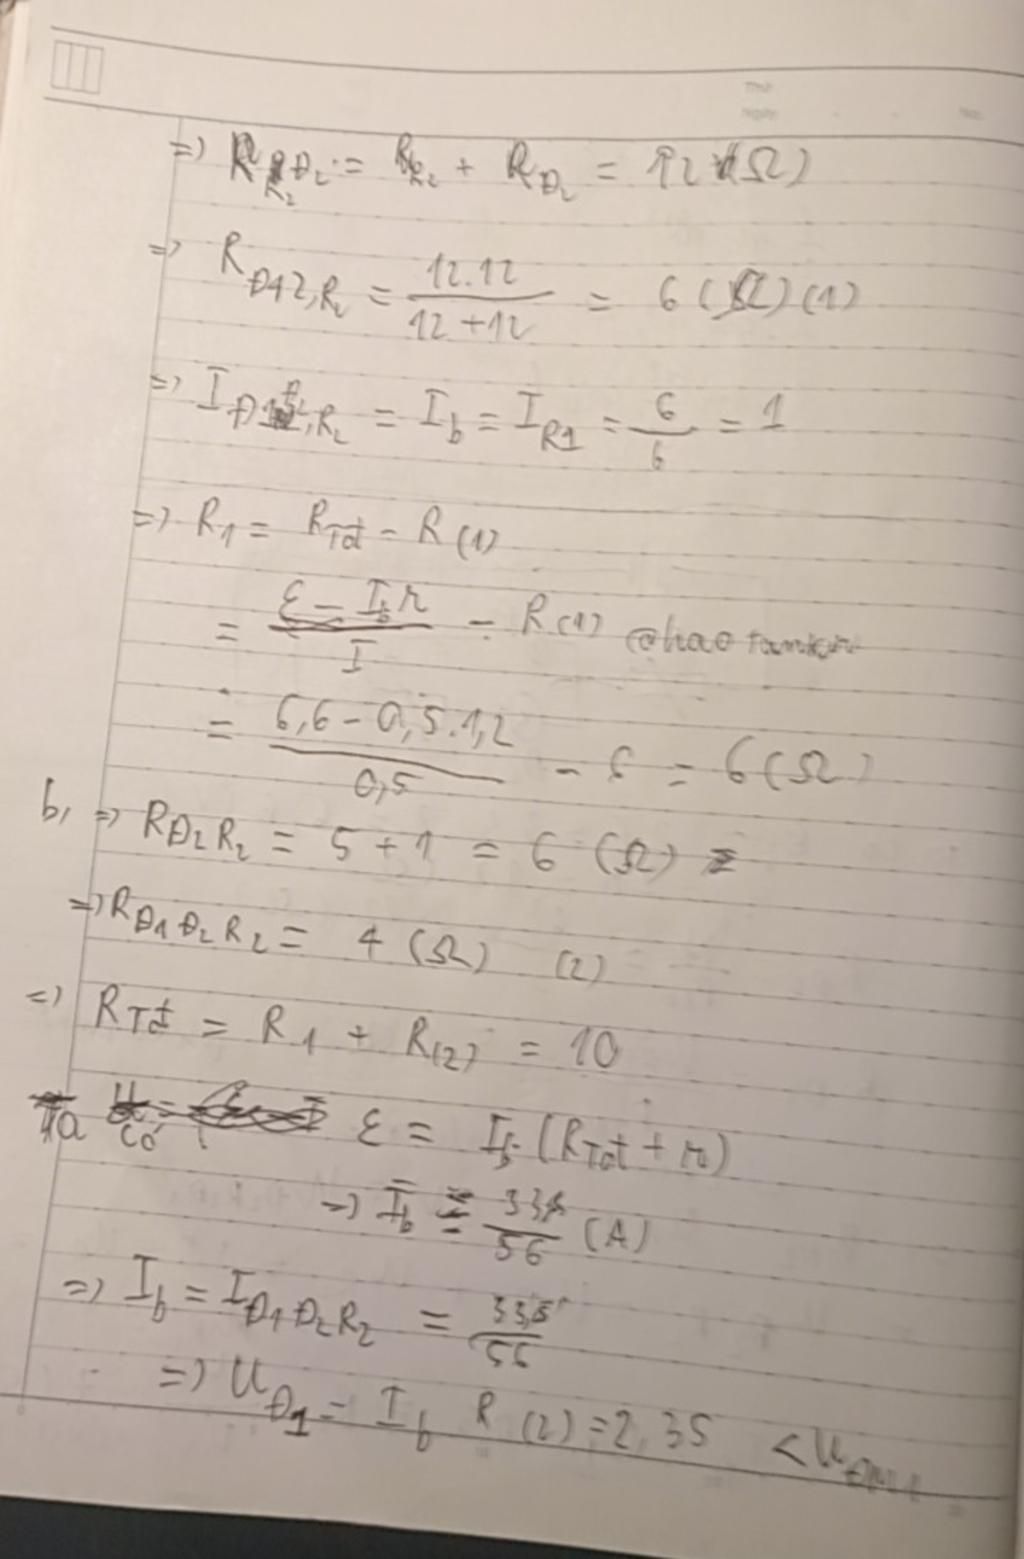 => R_{R_2Đ_2} = R_{R_2} + R_{Đ_2} = 12 (Ω)
=> R_{Đ12,R_2} = \frac{12.12}{12+12} = 6 (Ω) (1)
=> I_{Đ12,R_2} = I_b = I_{R1} = \frac{6}{6} = 1
=> R_1 = R_{Tđ} - R_{(1)}
= \frac{ε - I_b r}{I} - R_{(1)}
= \frac{6,6 - 0,5.1,2}{0,5} - 6 = 6 (Ω)
b, => R_{Đ_2R_2} = 5 + 1 = 6 (Ω)
=> R_{Đ_1Đ_2R_2} = 4 (Ω) (2)
=> R_{Tđ} = R_1 + R_{(2)} = 10
Ta có ε = I_b (R_{Tđ} + r)
=> I_b = \frac{33}{56} (A)
=> I_b = I_{Đ_1Đ_2R_2} = \frac{33}{56}
=> U_{Đ1} = I_b R_{(2)} = 2,35 < U_{ĐM1}